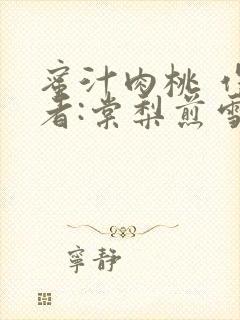 蜜汁肉桃 作
者:棠梨煎雪
寧静